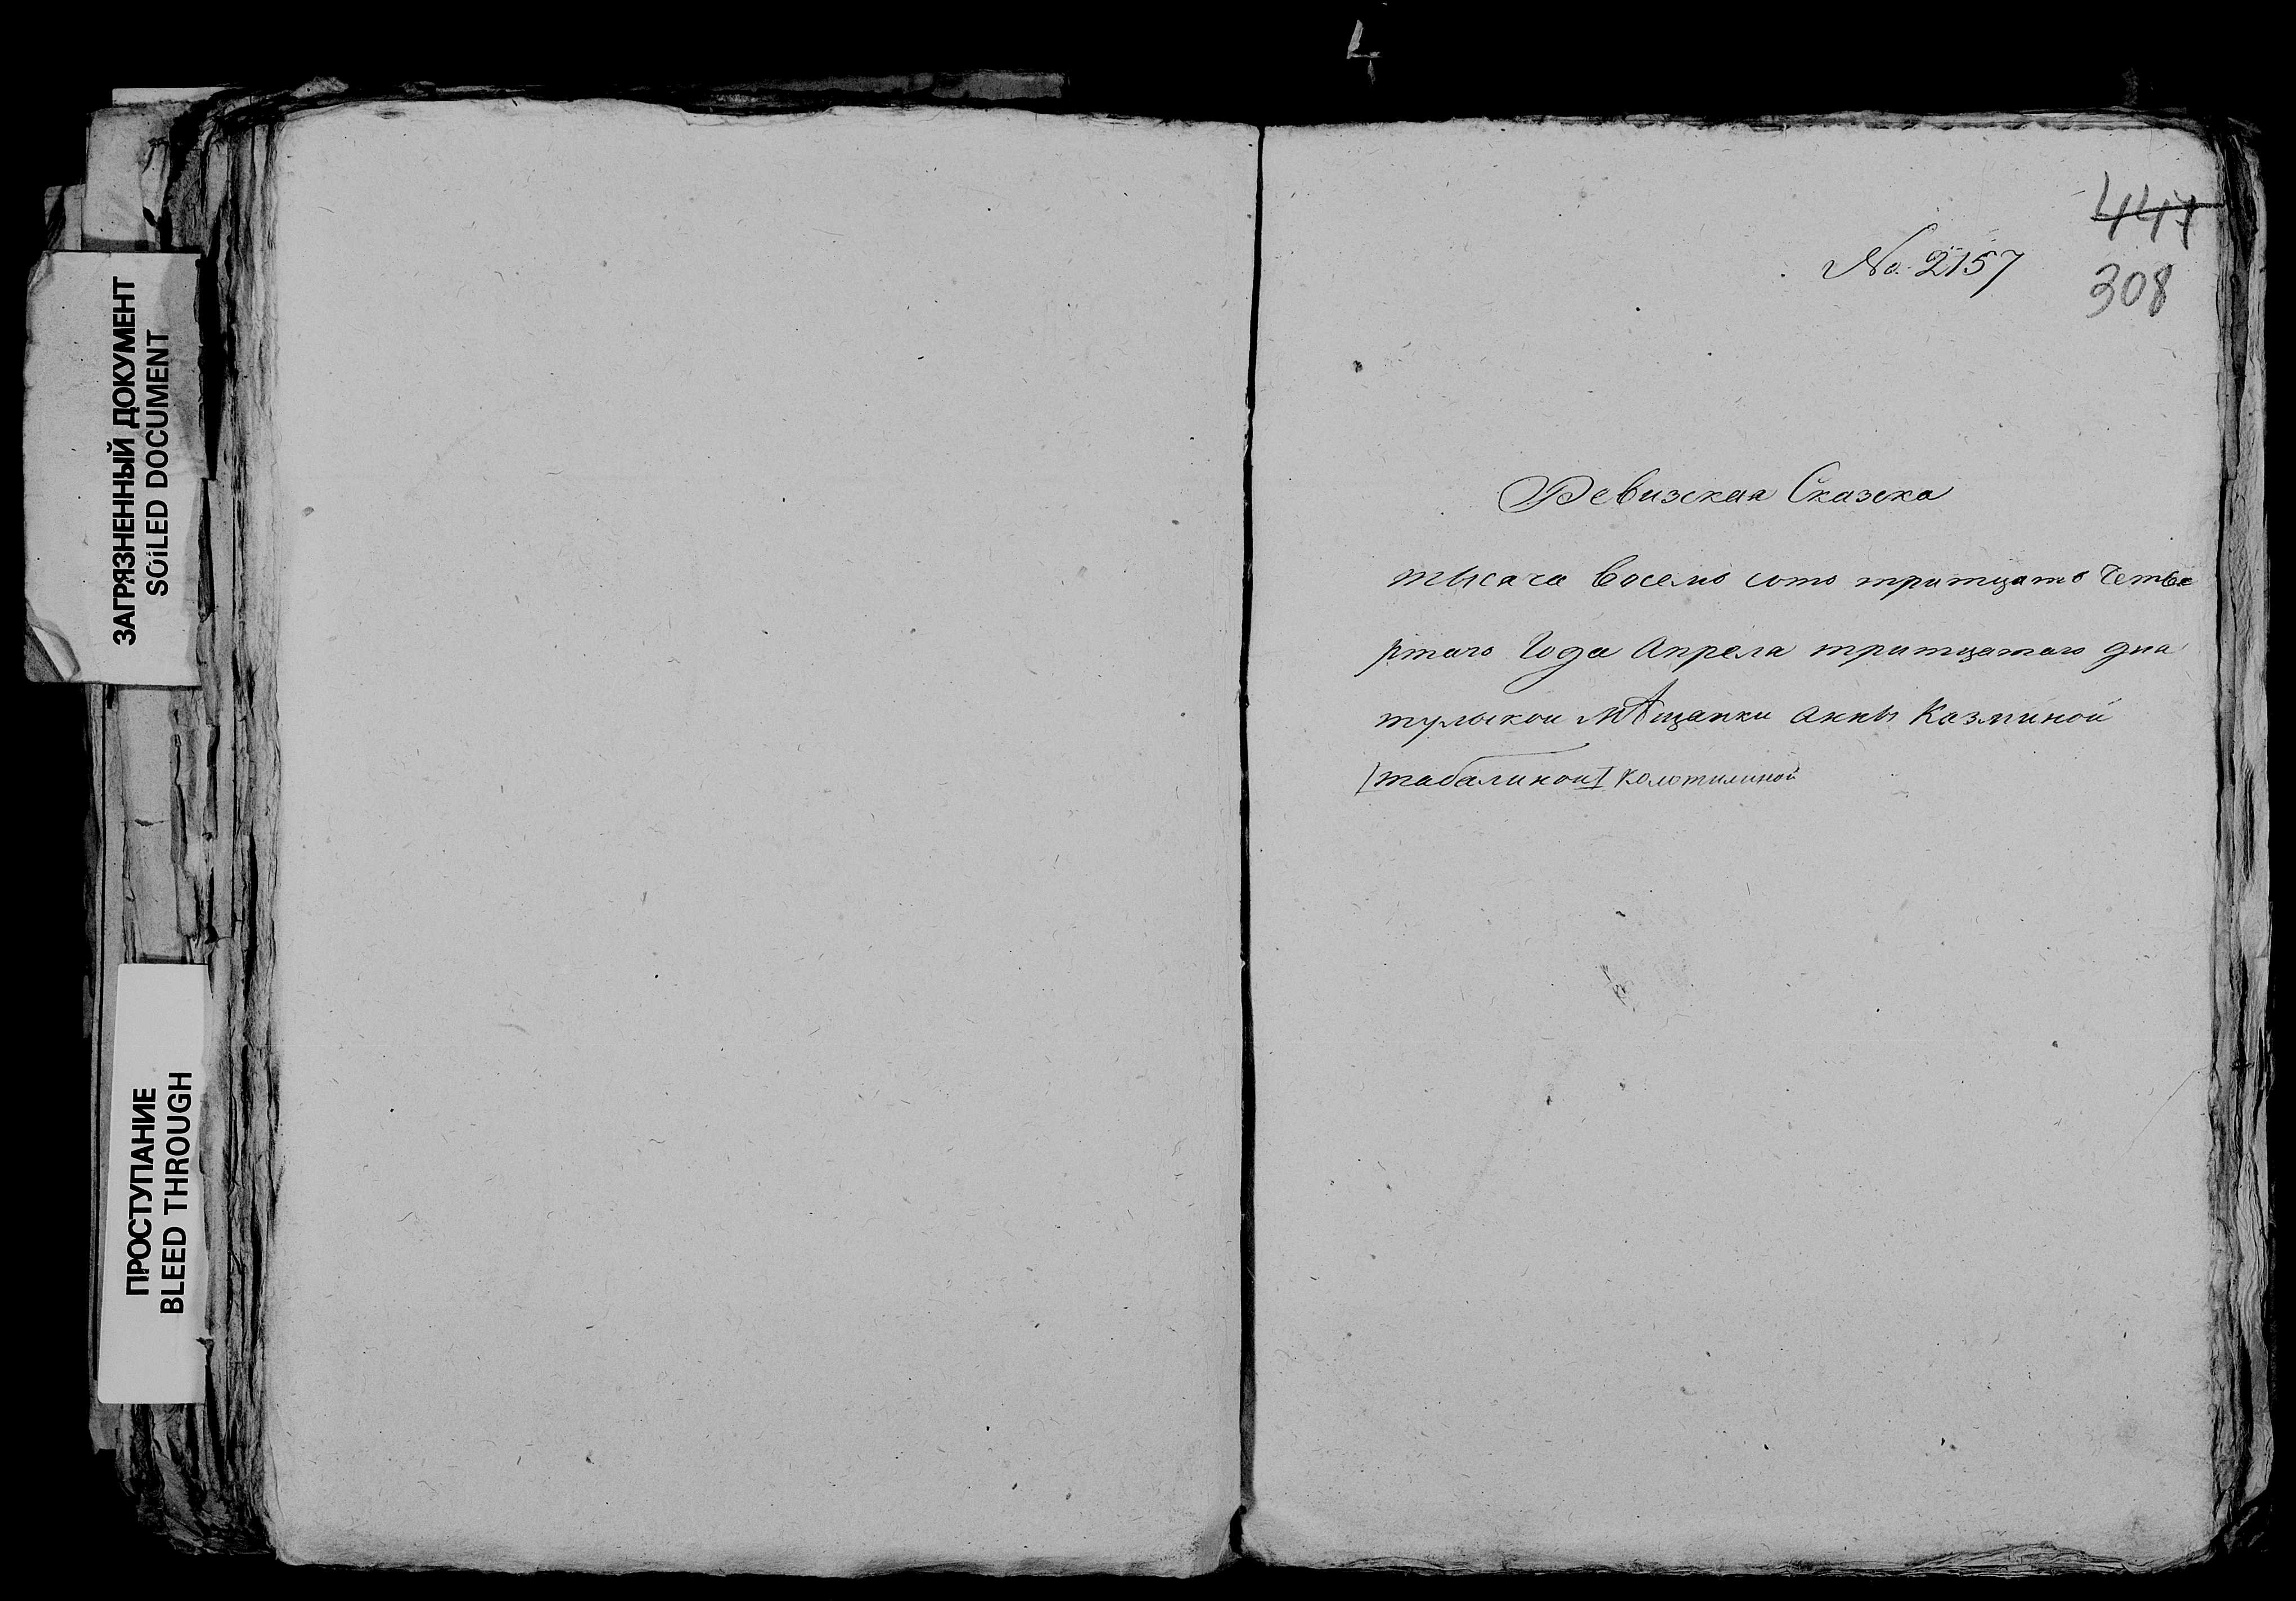 4
ЗАГРЯЗНЕННЫЙ ДОКУМЕНТ
SOILED DOCUMENT
ПРОСТУПАНИЕ
BLEED THROUGH
447
No. 2157
308
Ревизская Сказка
тысяча восемь сотъ тритцать Четве
ртаго Года Апреля тритцатаго дня
тульской мѣщанки Анны Казминой
[табалиной] Колотилиной